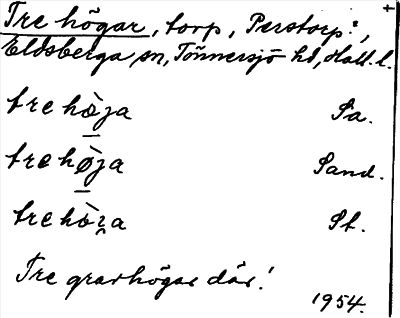 Tre högar, torp, Perstorp:,
Eldsberga sn, Tönnersjö hd, Hall. l.
tre hø̀ja Sa.
tre hø̀ja Sand.
tre hö̀ra St.
Tre gravhögar där!
1954.